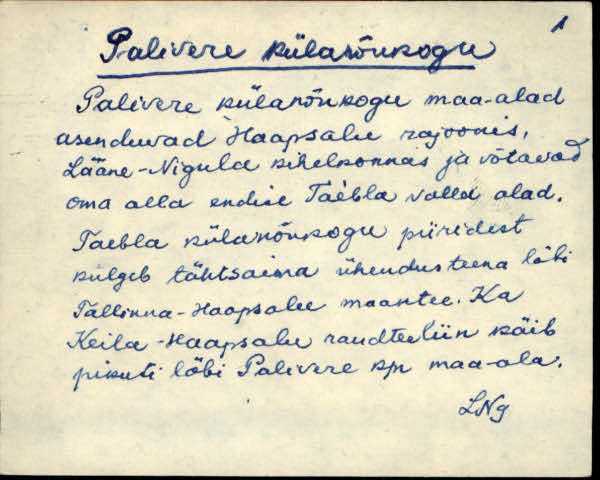 1
Palivere külanõukogu
Palivere külanõukogu maa-alad
asenduvad Haapsalu rajoonis,
Lääne-Nigula kihelkonnas ja võtavad
oma alla endise Taebla valla alad.
Taebla külanõukogu piiridest
kulgeb tähtsaima ühendusteena läbi
Tallinna-Haapsalu maantee. Ka
Keila-Haapsalu raudteeliin käib
pikuti läbi Palivere kn maa-ala.
LNg